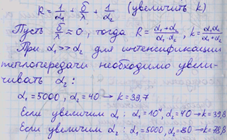 R = 1/α₁ + δ/λ + 1/α₂ (увеличить k)
Пусть δ/λ = 0, тогда R = (α₁+α₂)/(α₁·α₂), k = (α₁·α₂)/(α₁+α₂)
При α₁ >> α₂ для интенсификации
теплогередачи необходимо увели-
чивать α₂:
α₁ = 5000, α₂ = 40 → k = 39,7
Если увеличим α₁: α₁ = 10⁴, α₂ = 40 → k = 39,8
Если увеличим α₂: α₁ = 5000, α₂ = 80 → k = 78,8